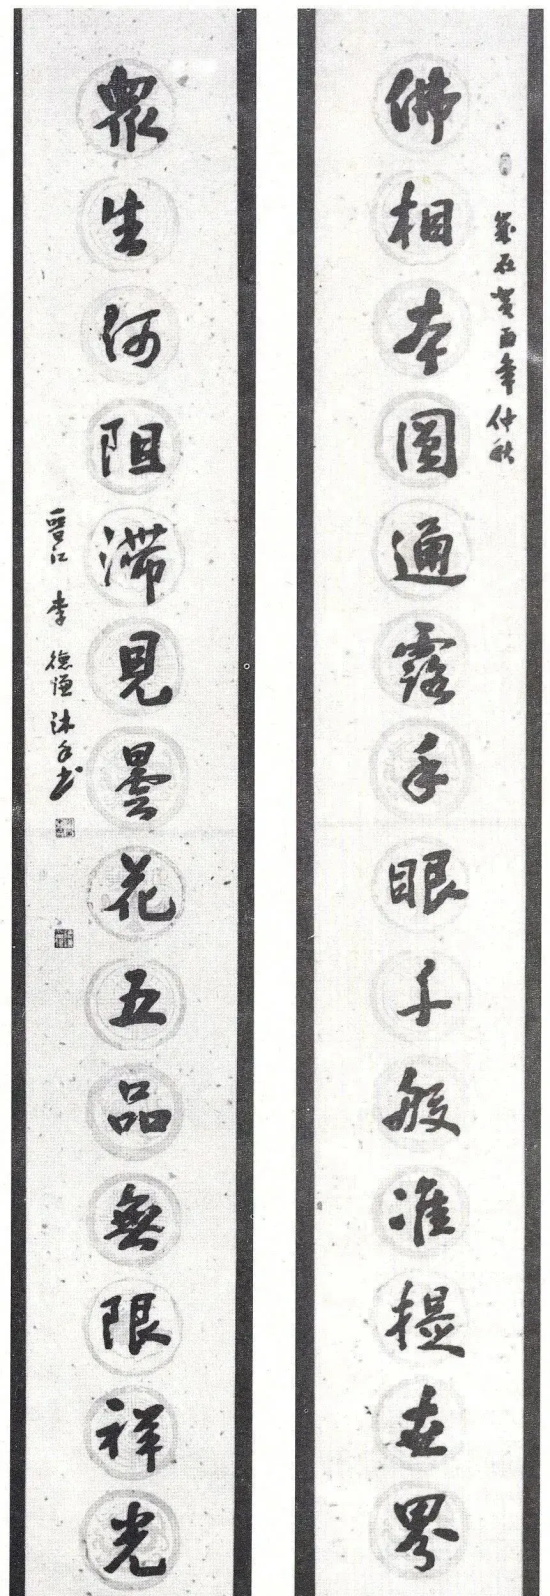 歲在癸酉年仲秋
佛相本圓通露手眼千般准提世界
眾生何阻滯見曇花五品無限祥光
晉江 李德謹沐手书